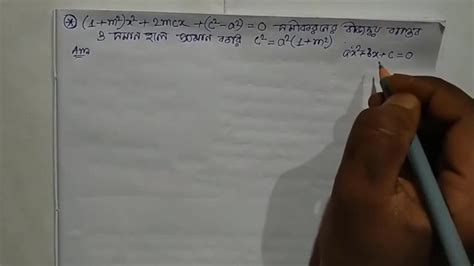 ⊛ (1+m²)x² + 2mcx + (c²-a²) = 0 সমীকরণের বীজদ্বয় বাস্তব
ও সমান হলে প্রমাণ করি c² = a²(1+m²)
Ans ax²+bx+c=0